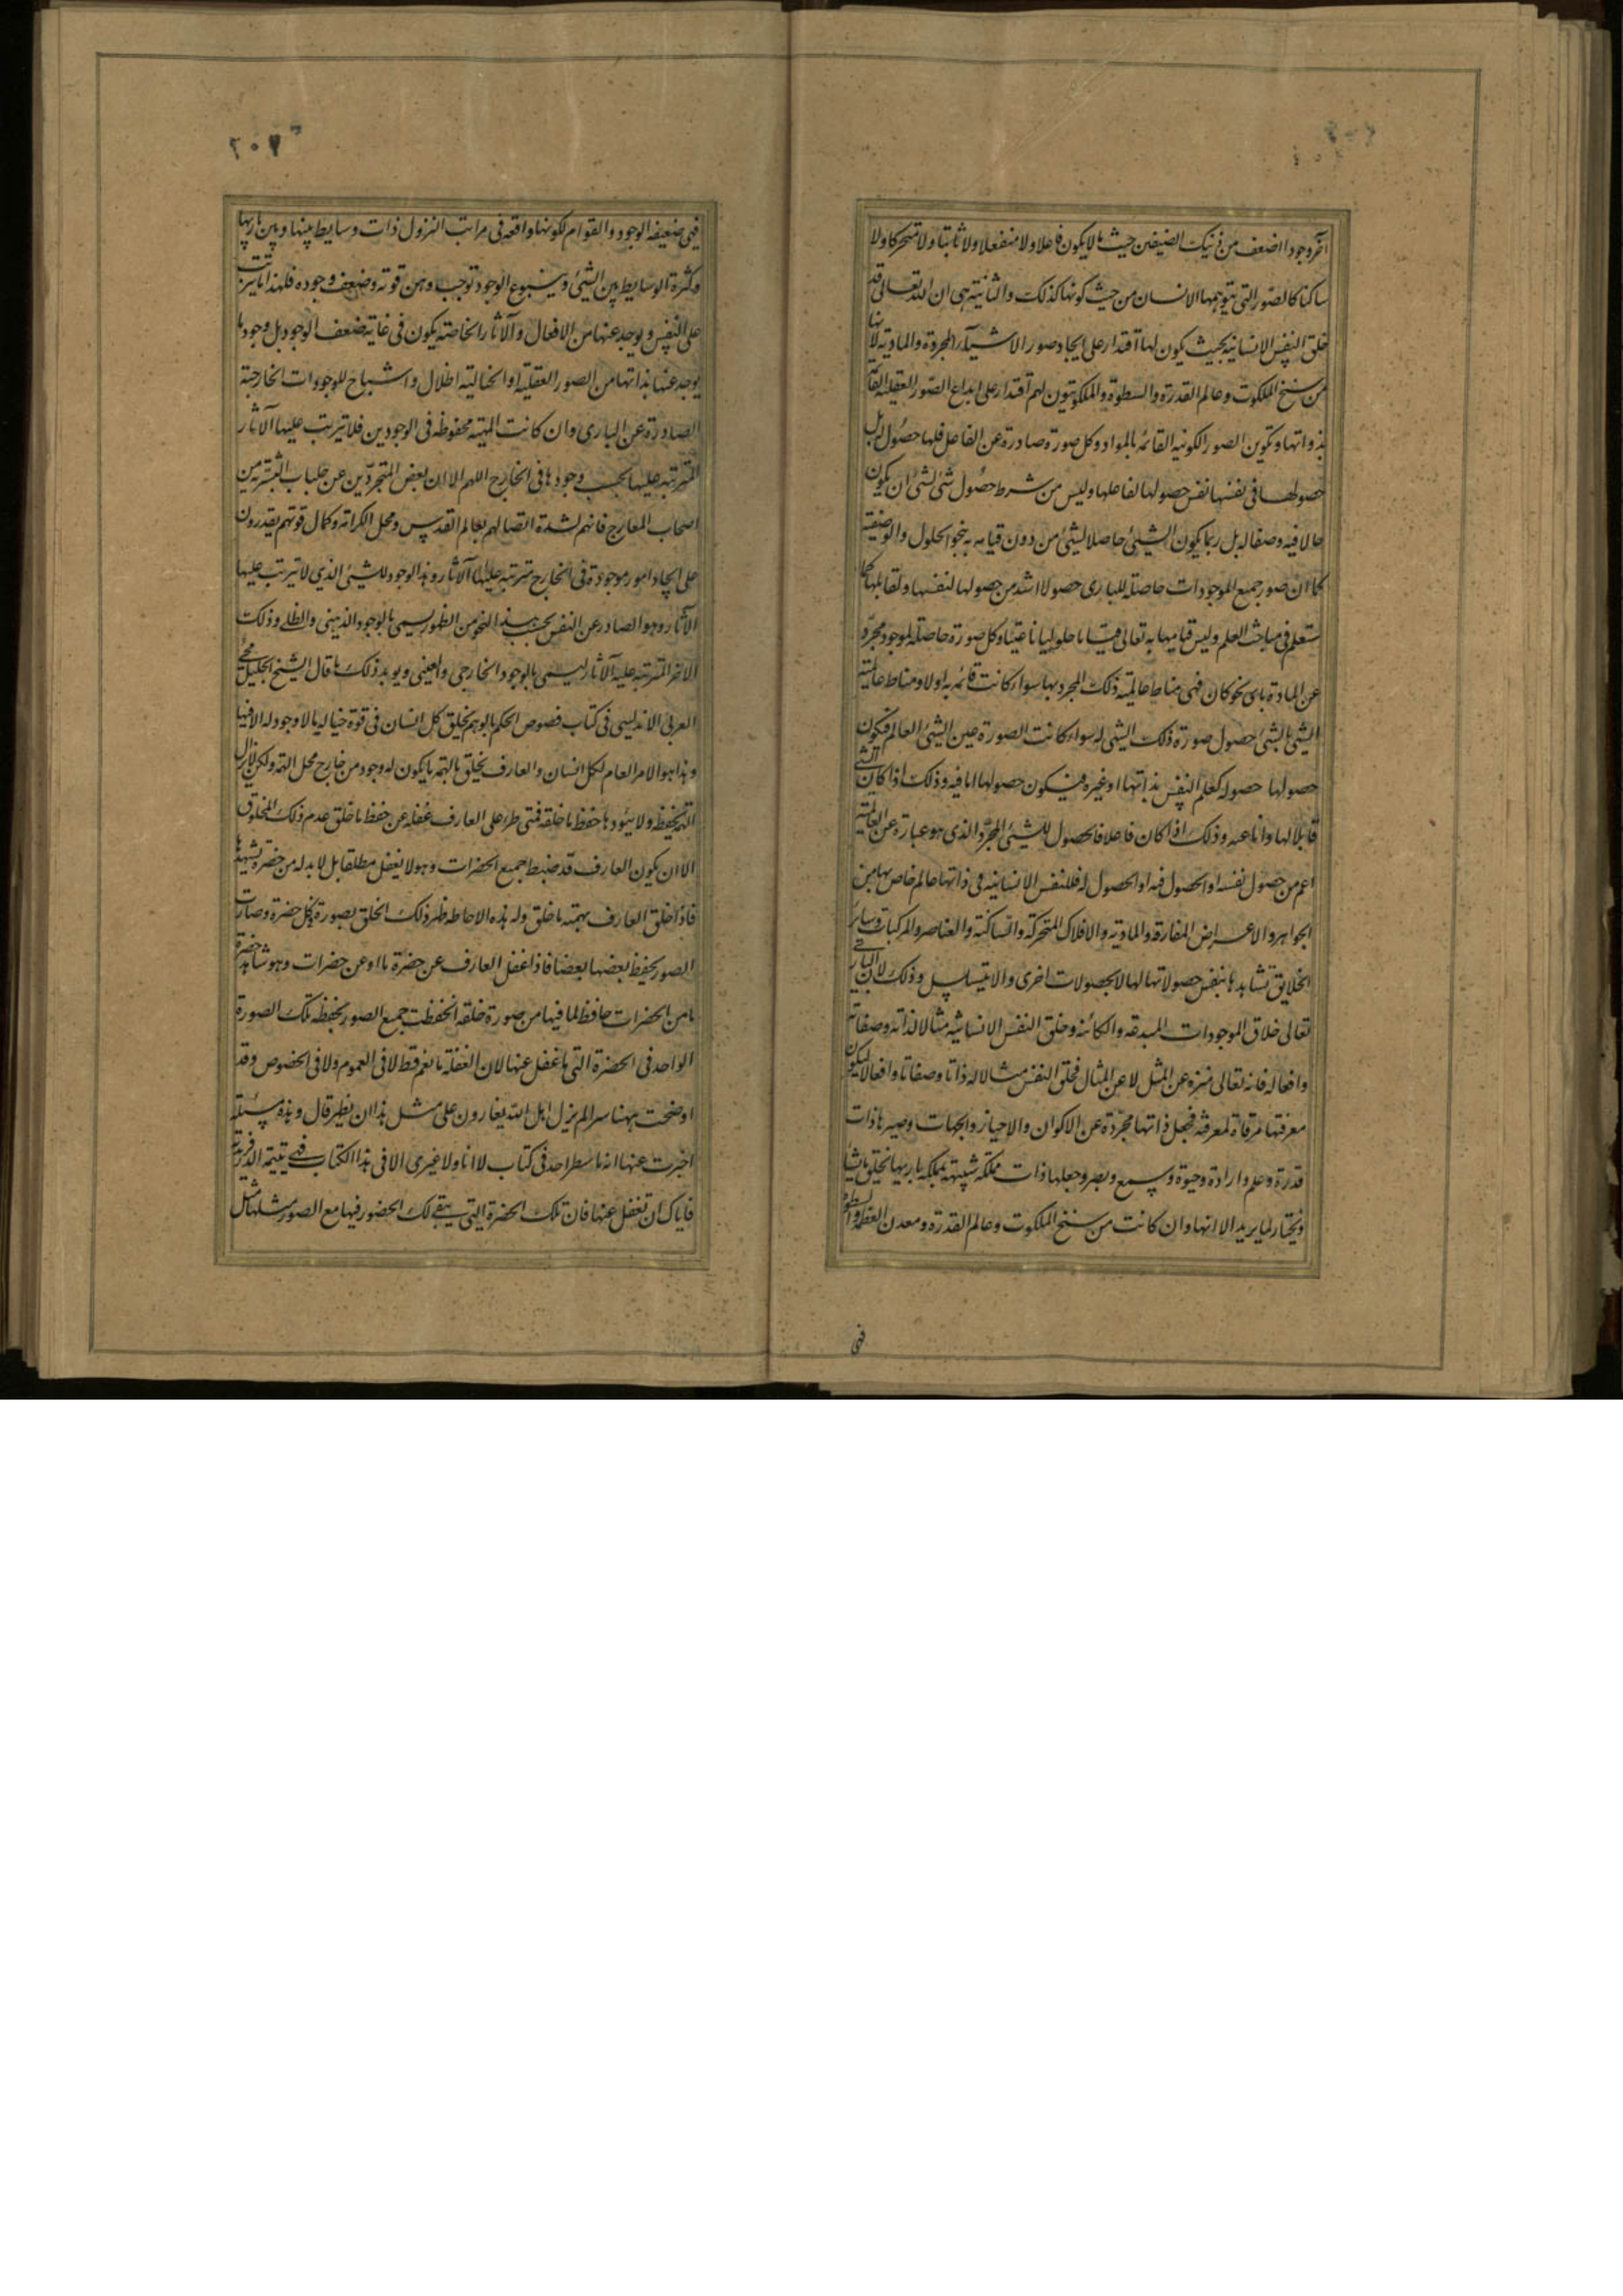 آخر وجودا اضعف من ذينك الضيفين حيث ما لا يكون فاعلا ولا منفعلا ولا ثابتا ولا متحركا ولا
ساكنا كالصور التى يتوهمها الانسان من حيث كونها كذلك والثانيه هى ان الله تعالى قد
خلق النفس الانسانيه بحيث يكون لها اقتدار على ايجاد صور الاشياء المجردة والماديه لانها
من سنخ الملكوت وعالم القدرة والسطوة والملكوتيون لهم اقتدار على ابداع الصور العقليه القائمه
بذواتها وتكوين الصور الكونيه القائمه بالمواد وكل صورة صادرة عن الفاعل فلها حصول له بل
حصولها فى نفسها نفس حصولها لفاعلها وليس من شرط حصول شئ لشئ ان يكون
حالا فيه وصفا له بل ربما يكون الشيئ حاصلا لشيئ من دون قيامه به بنحو الحلول والوصفيه
كما ان صور جميع الموجودات حاصله للبارى حصولا اشد من حصولها لنفسها ولقابلها كما
ستعلم فى مباحث العلم وليس قيامها به تعالى قياما حلوليا ناعتيا وكل صورة حاصله لموجود مجرد
عن المادة باى نحو كان فهى مناط عالميه ذلك المجرد بها سواء كانت قائمه به او لا ومناط عالميه
الشيئ بالشيئ حصول صورة ذلك الشيئ له سواء كانت الصورة عين الشيئ العالم فيكون
حصولها حصوله كعلم النفس بذاتها او غيره فيكون حصولها اما فيه وذلك اذا كان الشى
قابلا لها واما عنه وذلك اذا كان فاعلا فالحصول للشيئ المجرد الذى هو عبارة عن العالميه
اعم من حصول نفسه او الحصول فيه او الحصول له فللنفس الانسانيه فى ذاتها عالم خاص بها من
الجواهر والاعراض المفارقه والماديه والافلاك المتحركه والساكنه والعناصر والمركبات وساير
الخلايق تشاهدها بنفس حصولاتها لها لا بحصولات اخرى والا يتسلسل وذلك لان البارى
تعالى خلاق الموجودات المبدعه والكائنه وخلق النفس الانسانيه مثالا لذاته وصفاته
وافعاله فانه تعالى منزه عن المثل لا عن المثال فخلق النفس مثالا له ذاتا وصفاتا وافعالا ليكون
معرفتها مرقاة لمعرفته فجعل ذاتها مجردة عن الاكوان والاحياز والجهات وصيرها ذات
قدرة وعلم وارادة وحيوة وسمع وبصر وجعلها ذات مملكه شبيهه بمملكه باريها يخلق ما يشاء
ويختار لما يريد الا انها وان كانت من سنخ الملكوت وعالم القدرة ومعدن العظمه والسطوة
فهى
٢٠٧
فهى ضعيفه الوجود والقوام لكونها واقعه فى مراتب النزول ذات وسايط بينها وبين باريها
وكثرة الوسايط بين الشيئ وينبوع الوجود توجب وهن قوته وضعف وجوده فلهذا ما يترتب
على النفس ويوجد عنها من الافعال والآثار الخاصه يكون فى غايه ضعف الوجود بل وجود ما
يوجد عنها بذاتها من الصور العقليه او الخياليه اظلال واشباح للوجودات الخارجيه
الصادرة عن البارى وان كانت المهيه محفوظه فى الوجودين فلا يترتب عليها الآثار
المترتبه عليها بحسب وجودها فى الخارج اللهم الا ان بعض المتجردين عن جلباب البشريه من
اصحاب المعارج فانهم لشدة اتصالهم بعالم القدس ومحل الكرامه وكمال قوتهم يقدرون
على ايجاد امور موجودة فى الخارج مترتبه عليها الآثار وهذا الوجود للشيئ الذى لا يترتب عليها
الآثار وهو الصادر عن النفس بحسب هذا النحو من الظهور يسمى بالوجود الذهنى والظلى وذلك
الاخر المترتبه عليه الآثار يسمى بالوجود الخارجى والعينى ويويد ذلك ما قال الشيخ الجليل محى
العربى الاندلسى فى كتاب فصوص الحكم بالوهم يخلق كل انسان فى قوة خياله ما لا وجود له الا فيها
وهذا هو الامر العام لكل انسان والعارف يخلق بالهمه ما يكون له وجود من خارج محل الهمه ولكن لا يزال
الهمه تحفظه ولا يئودها حفظ ما خلقه فمتى طرا على العارف غفله عن حفظ ما خلق عدم ذلك المخلوق
الا ان يكون العارف قد ضبط جميع الحضرات وهو لا يغفل مطلقا بل لا بد له من حضرة يشهدها
فاذا خلق العارف بهمته ما خلق وله هذه الاحاطه ظهر ذلك الخلق بصورته فى كل حضرة وصارت
الصور يحفظ بعضها بعضا فاذا غفل العارف عن حضرة ما او عن حضرات وهو شاهد حضرة
ما من الحضرات حافظ لما فيها من صورة خلقه انحفظت جميع الصور بحفظه تلك الصورة
الواحدة فى الحضرة التى ما غفل عنها لان الغفله ما تعم قط لا فى العموم ولا فى الخصوص وقد
اوضحت ههنا سرا لم يزل اهل الله يغارون على مثل هذا ان يظهر قال وهذه مسئله
اخبرت عنها انه ما سطر احد فى كتاب لا انا ولا غيرى الا فى هذا الكتاب فهى يتيمه الدهر وفريدته
فاياك ان تغفل عنها فان تلك الحضرة التى يبقى لك الحضور فيها مع الصور مثلها مثل